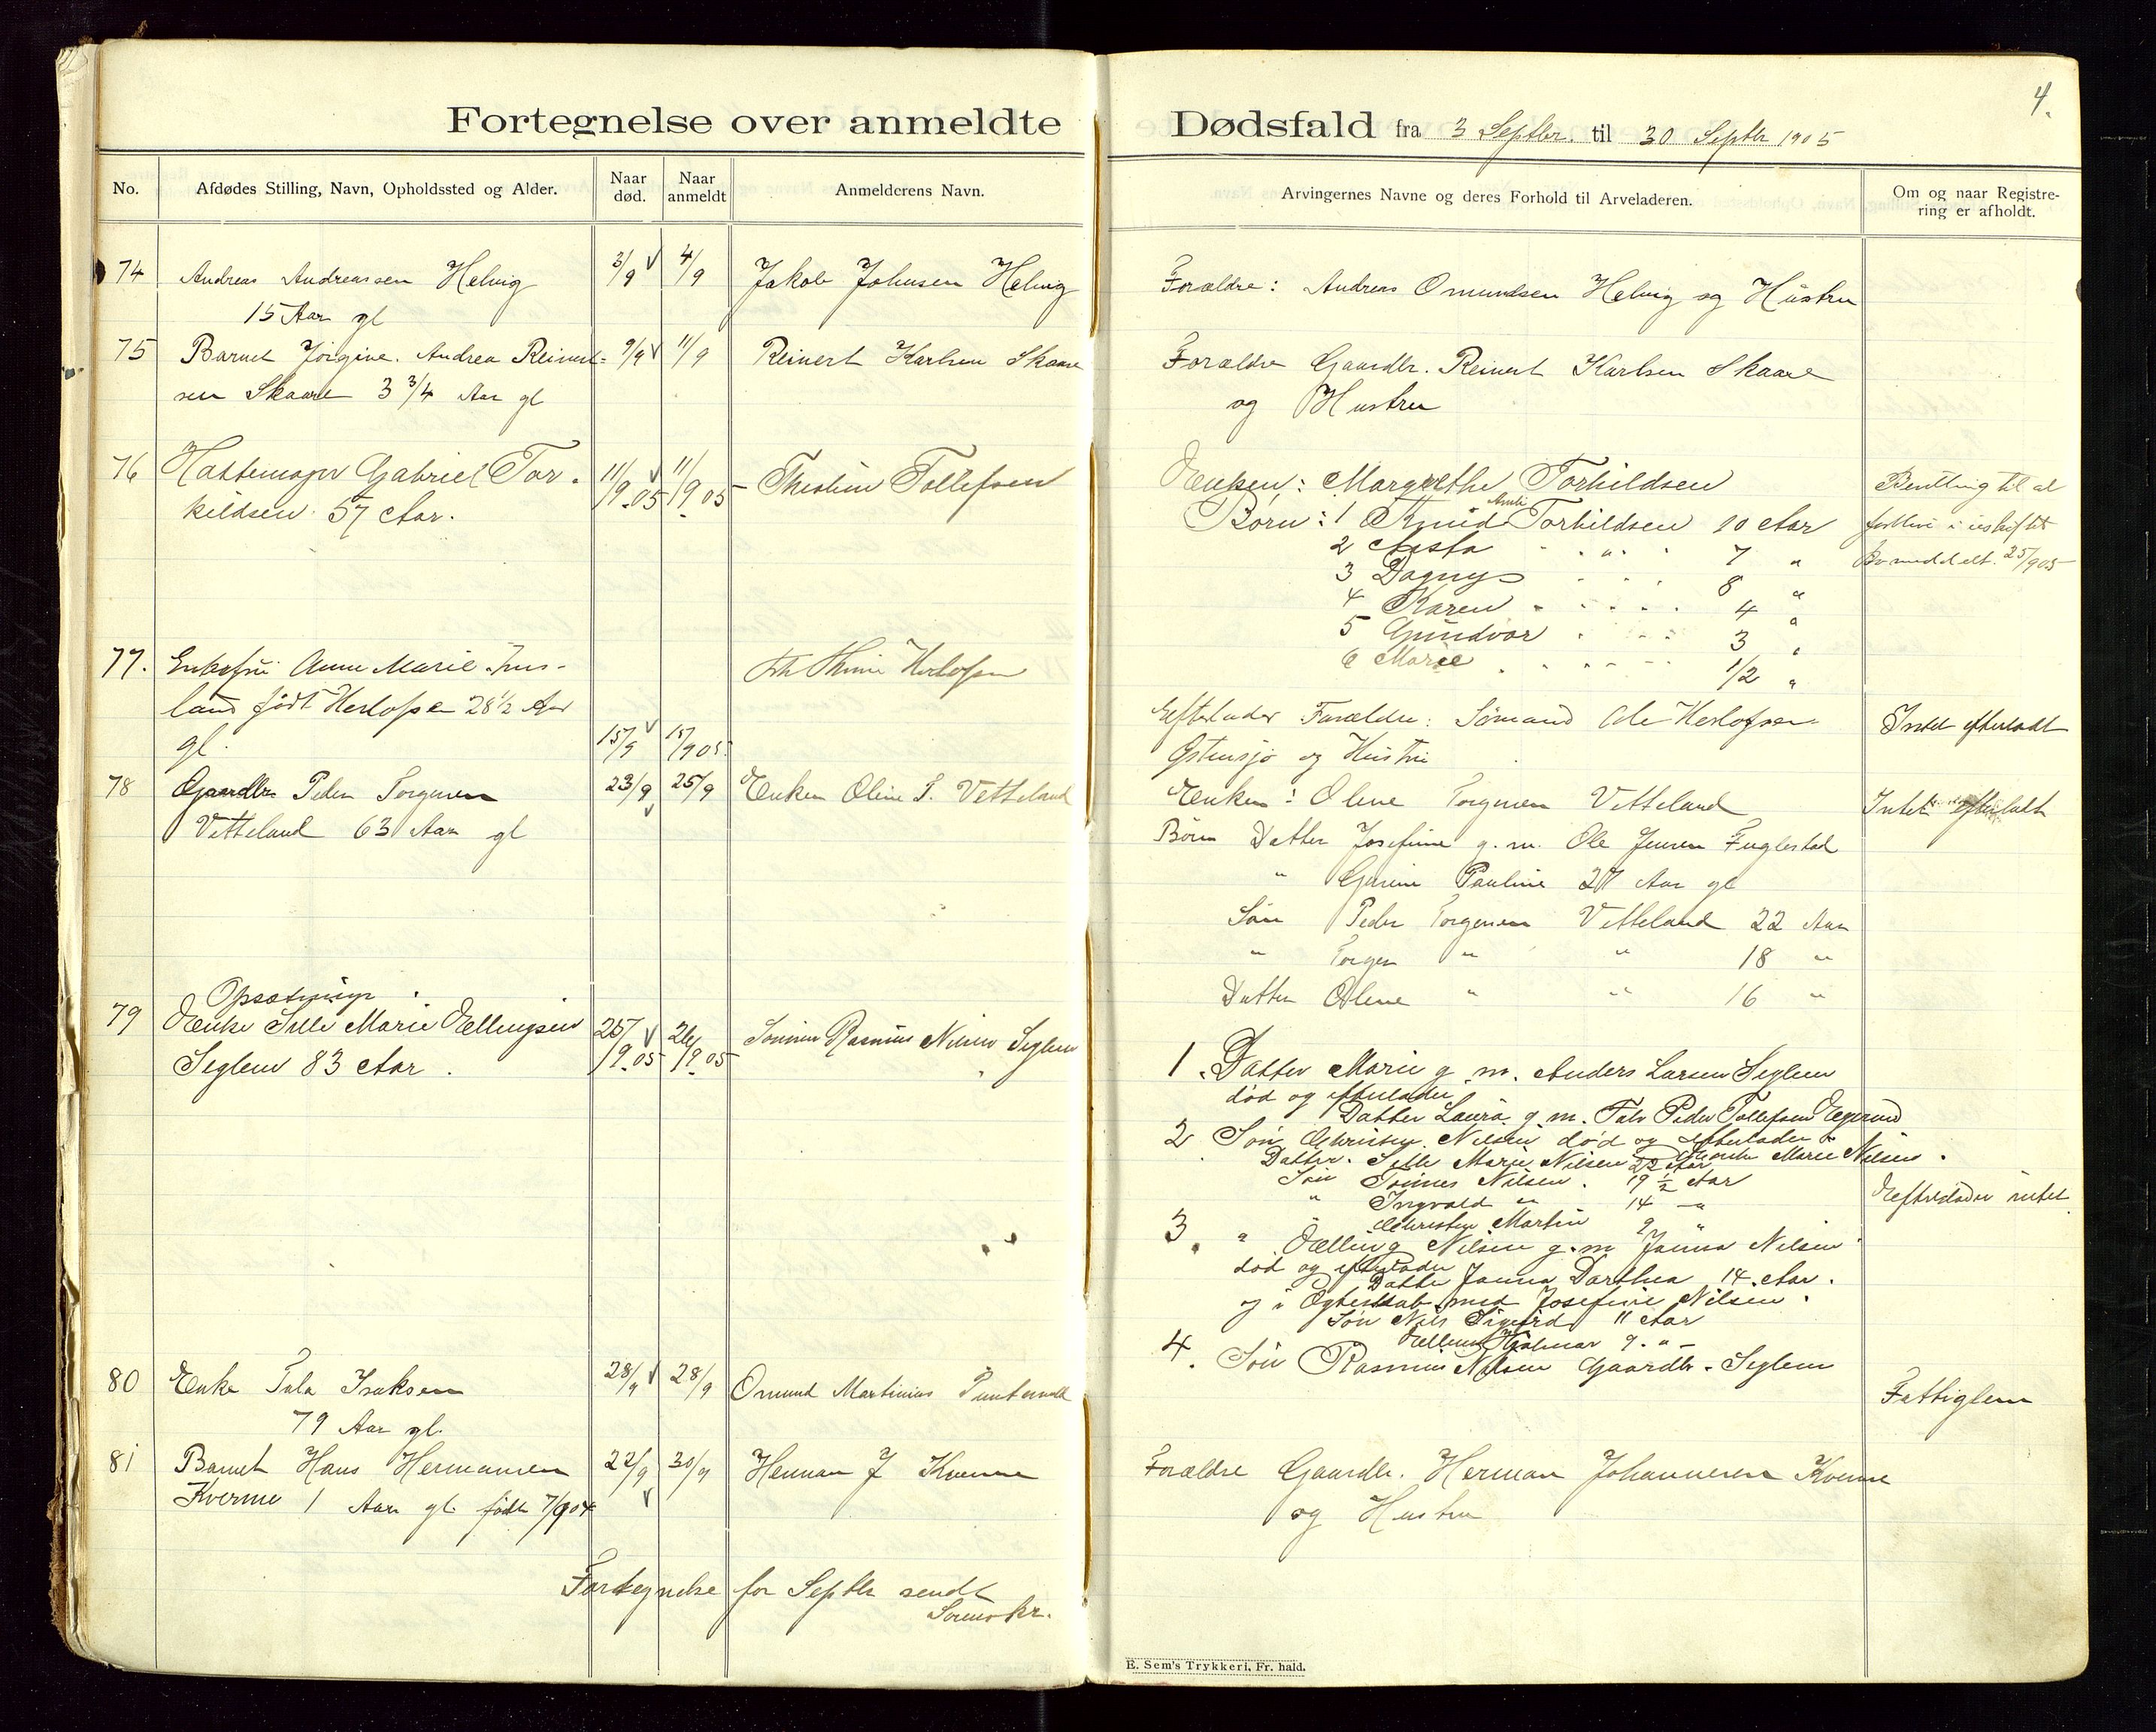 4.
Fortegnelse over anmeldte Dødsfald fra 3 Septbr. til 30 Septbr 1905
No. Afdødes Stilling, Navn, Opholdssted og Alder. Naar død. Naar anmeldt Anmelderens Navn. Arvingernes Navne og deres Forhold til Arveladeren. Om og naar Registrering er afholdt.
74 Andreas Andreassen Helvig 3/9 4/9 Jakob Johnsen Helvig Forældre: Andreas Omundsen Helvig og Hustru
15 Aar gl
75 Barnet Jørgine Andrea Reinert- 9/9 11/9 Reinert Karlsen Skaare Forældre Gaardbr. Reinert Karlsen Skaare
sen Skaare 3 3/4 Aar gl og Hustru
76 Hattemager Gabriel Tor- 11/9.05 11/9.05 Tollefsen Enken: Margrethe Torkildsen
kildsen. 57 Aar. Børn: 1 Knud Torkildsen 10 Aar
2 Aasta " " 7 "
3 Dagny " " 8 "
4 Karen " " 4 "
5 Gundvor " " 3 "
6 Marie " " 1/2 "
meddelt. 25/9 05
77. Enkefru Anne Marie
land født Herlofsen 28 1/2 Aar
gl. 15/9 15/9 05. Herlofsen
Efterlader Forældre: Sømand Ole Herlofsen
Østensjø og Hustru Intet efterladt
78 Gaardbr Peder Torgersen 23/9 25/9 Enken Oline T. Vetteland Enken: Oline Torgersen Vetteland Intet efterladt
Vetteland 63 Aar gl
Børn Datter Josefine g. m. Ole Jensen Fuglestad
" Gurine Pauline 27 Aar gl
Søn Peder Torgersen Vetteland 22 Aar
" Torger " " 18 "
Datter Oline " " 16 "
79 Enke Sille Marie Ellingsen 25/9.05 26/9.05 Sønnen Rasmus Nilsen Seglem
Seglem 83 Aar.
1. Datter Marie g. m. Anders Larsen Seglem
død og efterlader
Datter Laura g. m. Peder Tollefsen Egersund
2 Søn Christen Nilsen død og efterlader
Datter. Sille Marie Nilsen 22 Aar Marie Nilsen.
Søn Tønnes Nilsen. 19 1/2 Aar
" Ingvald " 14 "
" Christen Martin 9 "
Efterlader intet
3. " Elling Nilsen g. m Janna Nilsen
død og efterlader
Datter Janna Dorthea 14 Aar.
og i Egteskab med Josefine Nilsen.
Søn Nils Sigurd 11 Aar
Elling Hjalmar 9 " -
4. Søn Rasmus Nilsen Gaardbr. Seglem
80 Enke Tala Isaksen 28/9 28/9 Omund Martinius Puntervold Fattiglem
79 Aar gl.
81 Barnet Hans Hermansen 22/9 30/9 Herman J Kverme Forældre Gaardbr. Herman Johannesen Kverme
Kverme 1 Aar gl. født 7/9 04 og Hustru
Fortegnelse for Septbr sendt
Sorenskr.
E. Sem's Trykkeri, Fr. hald.